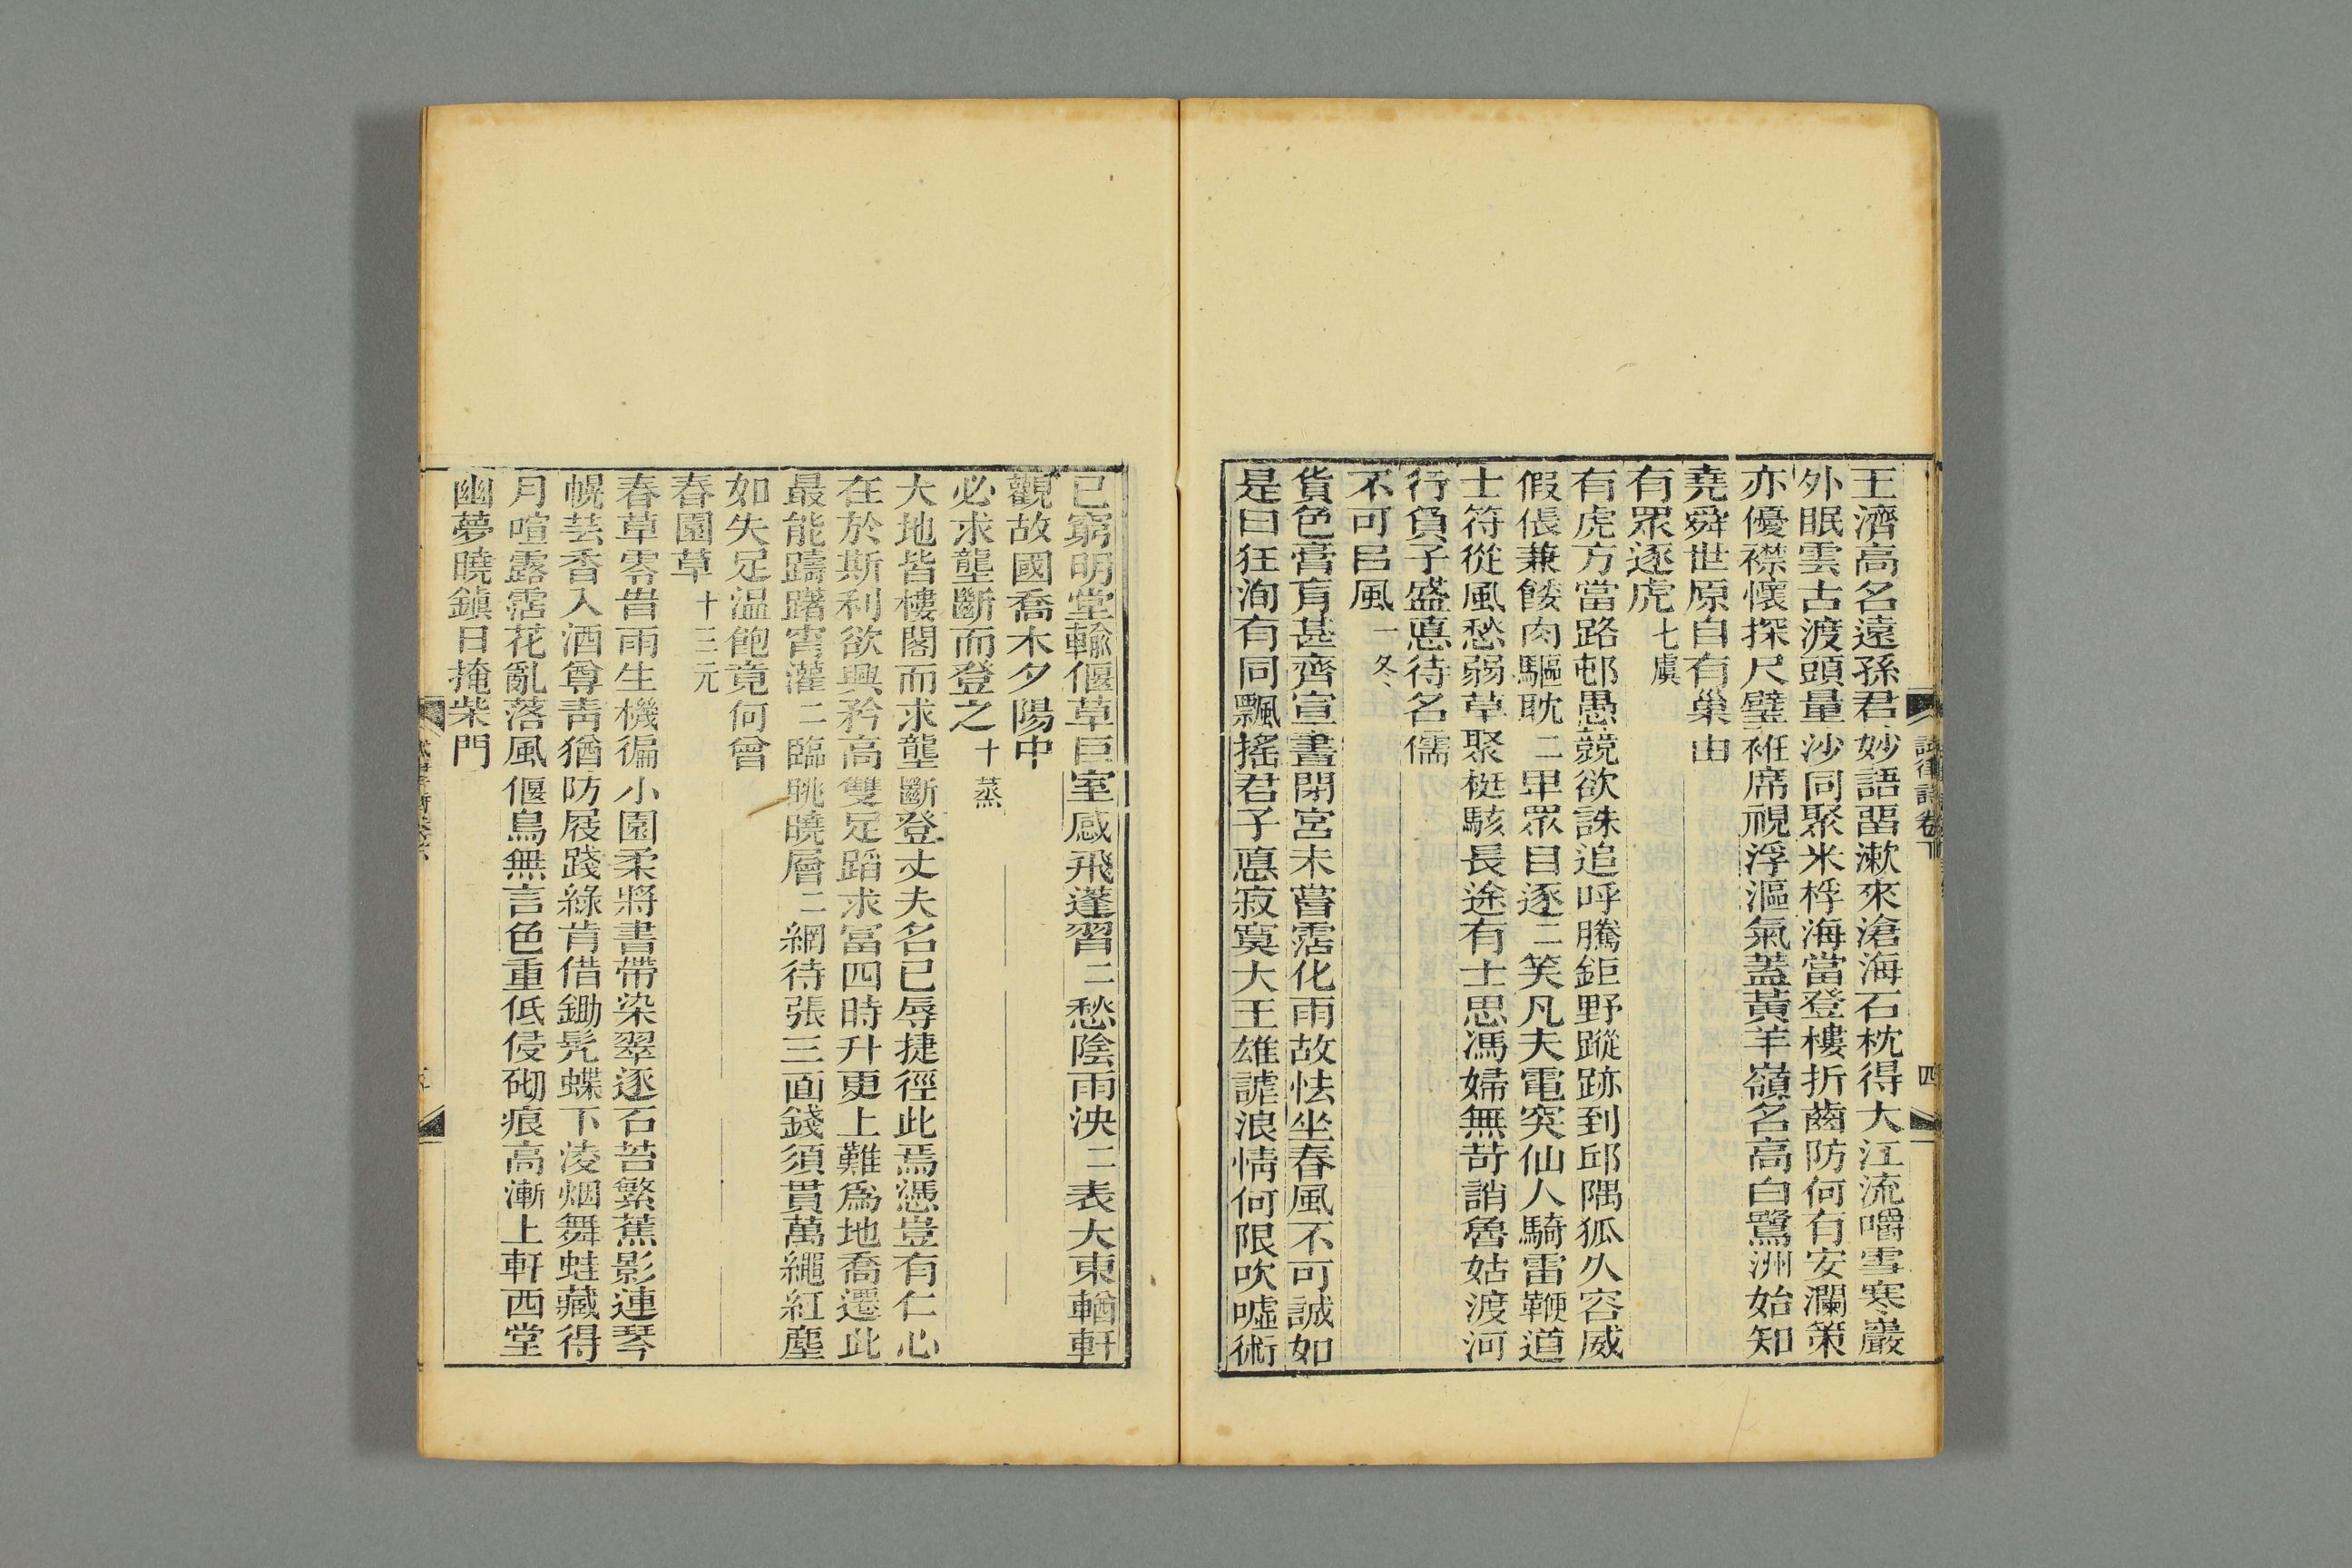 王濟高名遠孫君妙語畱漱來滄海石枕得大江流嚼雪寒巖
外眠雲古渡頭量沙同聚米桴海當登樓折齒防何有安瀾策
亦優襟懷探尺璧袵席視浮漚氣蓋黃羊嶺名高白鷺洲始知
堯舜世原自有巢由
有眾逐虎 七虞
有虎方當路邨愚競欲誅追呼騰鉅野蹤跡到邱隅狐久容威
假倀兼餧肉驅耽〻甲眾目逐〻笑凡夫電突仙人騎雷鞭道
士符從風愁弱草聚梃駭長途有士思馮婦無苛誚魯姑渡河
行負子盛惪待名儒
不可呂風 一冬
貨色膏肓甚齊宣晝閉宮未嘗霑化雨故怯坐春風不可誠如
是曰狂洵有同飄搖君子惪寂寞大王雄謔浪情何限吹噓術
試律詩卷下
四
已窮明堂輸偃草巨室感飛蓬習〻愁陰雨泱〻表大東輶軒
觀故國喬木夕陽中
必求壟斷而登之 十蒸
大地皆樓閣而求壟斷登丈夫名已辱捷徑此焉憑豈有仁心
在於斯利欲興矜高雙足蹈求富四時升更上難爲地喬遷此
最能躊躇宵灌〻臨眺曉層〻網待張三面錢須貫萬繩紅塵
如失足温飽竟何曾
春園草 十三元
春草零昔雨生機徧小園柔將書帶染翠逐石苔繁蕉影連琴
幌芸香入酒尊靑猶防屐踐綠肯借鋤髠蝶下淩烟舞蛙藏得
月喧露霑花亂落風偃鳥無言色重低侵砌痕高漸上軒西堂
幽夢曉鎮日掩柴門